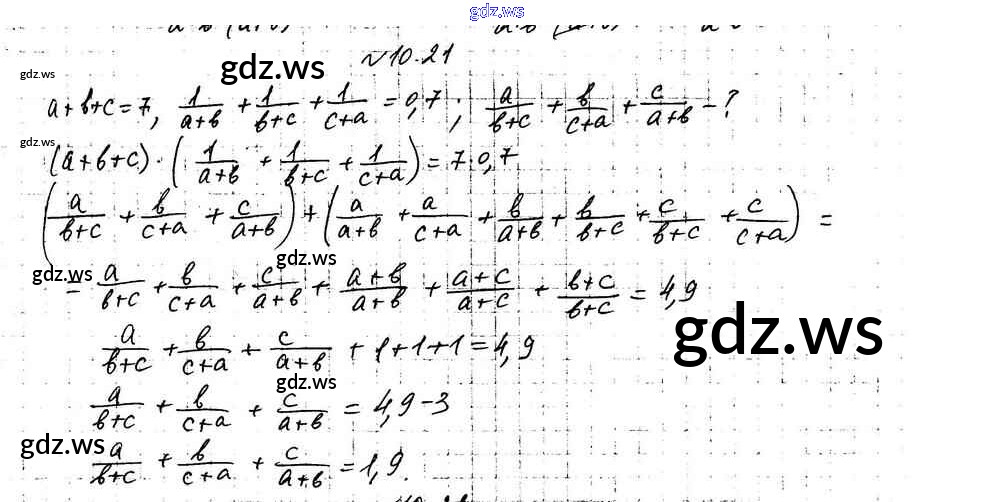 gdz.ws
№10.21
gdz.ws
gdz.ws
a+b+c=7, 1/(a+b) + 1/(b+c) + 1/(c+a) = 0,7; a/(b+c) + b/(c+a) + c/(a+b) - ?
gdz.ws
(a+b+c)·(1/(a+b) + 1/(b+c) + 1/(c+a)) = 7·0,7
(a/(b+c) + b/(c+a) + c/(a+b)) + (a/(a+b) + a/(c+a) + b/(a+b) + b/(b+c) + c/(b+c) + c/(c+a)) =
gdz.ws
gdz.ws
= a/(b+c) + b/(c+a) + c/(a+b) + (a+b)/(a+b) + (a+c)/(a+c) + (b+c)/(b+c) = 4,9
gdz.ws
a/(b+c) + b/(c+a) + c/(a+b) + 1+1+1 = 4,9
gdz.ws
a/(b+c) + b/(c+a) + c/(a+b) = 4,9-3
gdz.ws
a/(b+c) + b/(c+a) + c/(a+b) = 1,9.